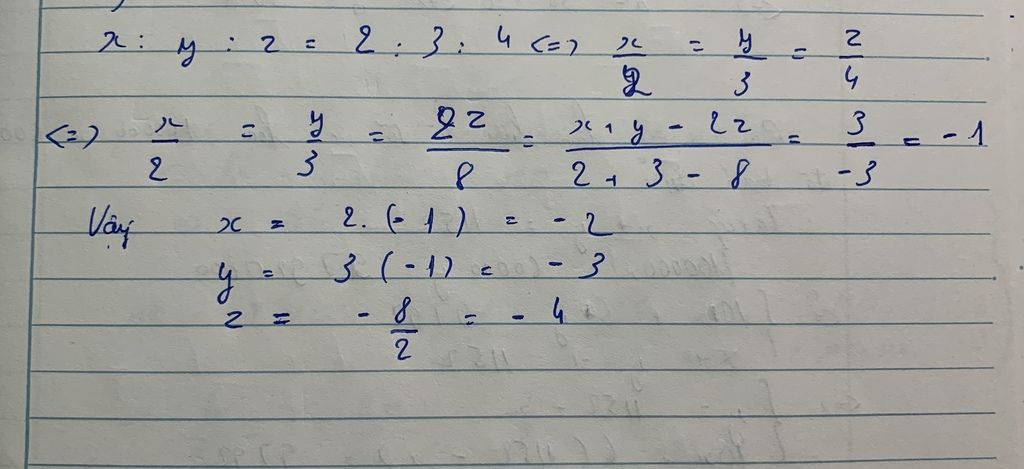 x : y : z = 2 : 3 : 4 <=> x/2 = y/3 = z/4
<=> x/2 = y/3 = 2z/8 = x + y - 2z / 2 + 3 - 8 = 3/-3 = -1
Vậy x = 2. (-1) = -2
y = 3 (-1) = -3
z = - 8/2 = -4